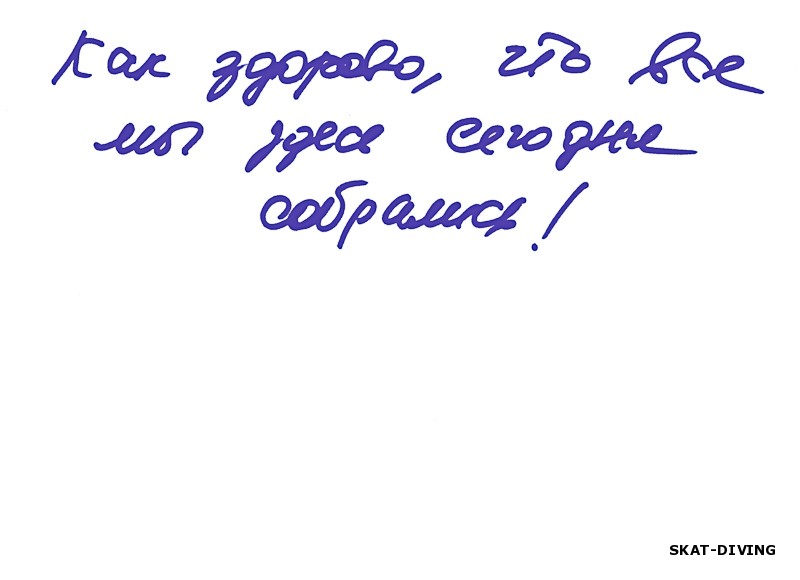 Как здорово, что все
мы здесь сегодня
собрались!
SKAT-DIVING